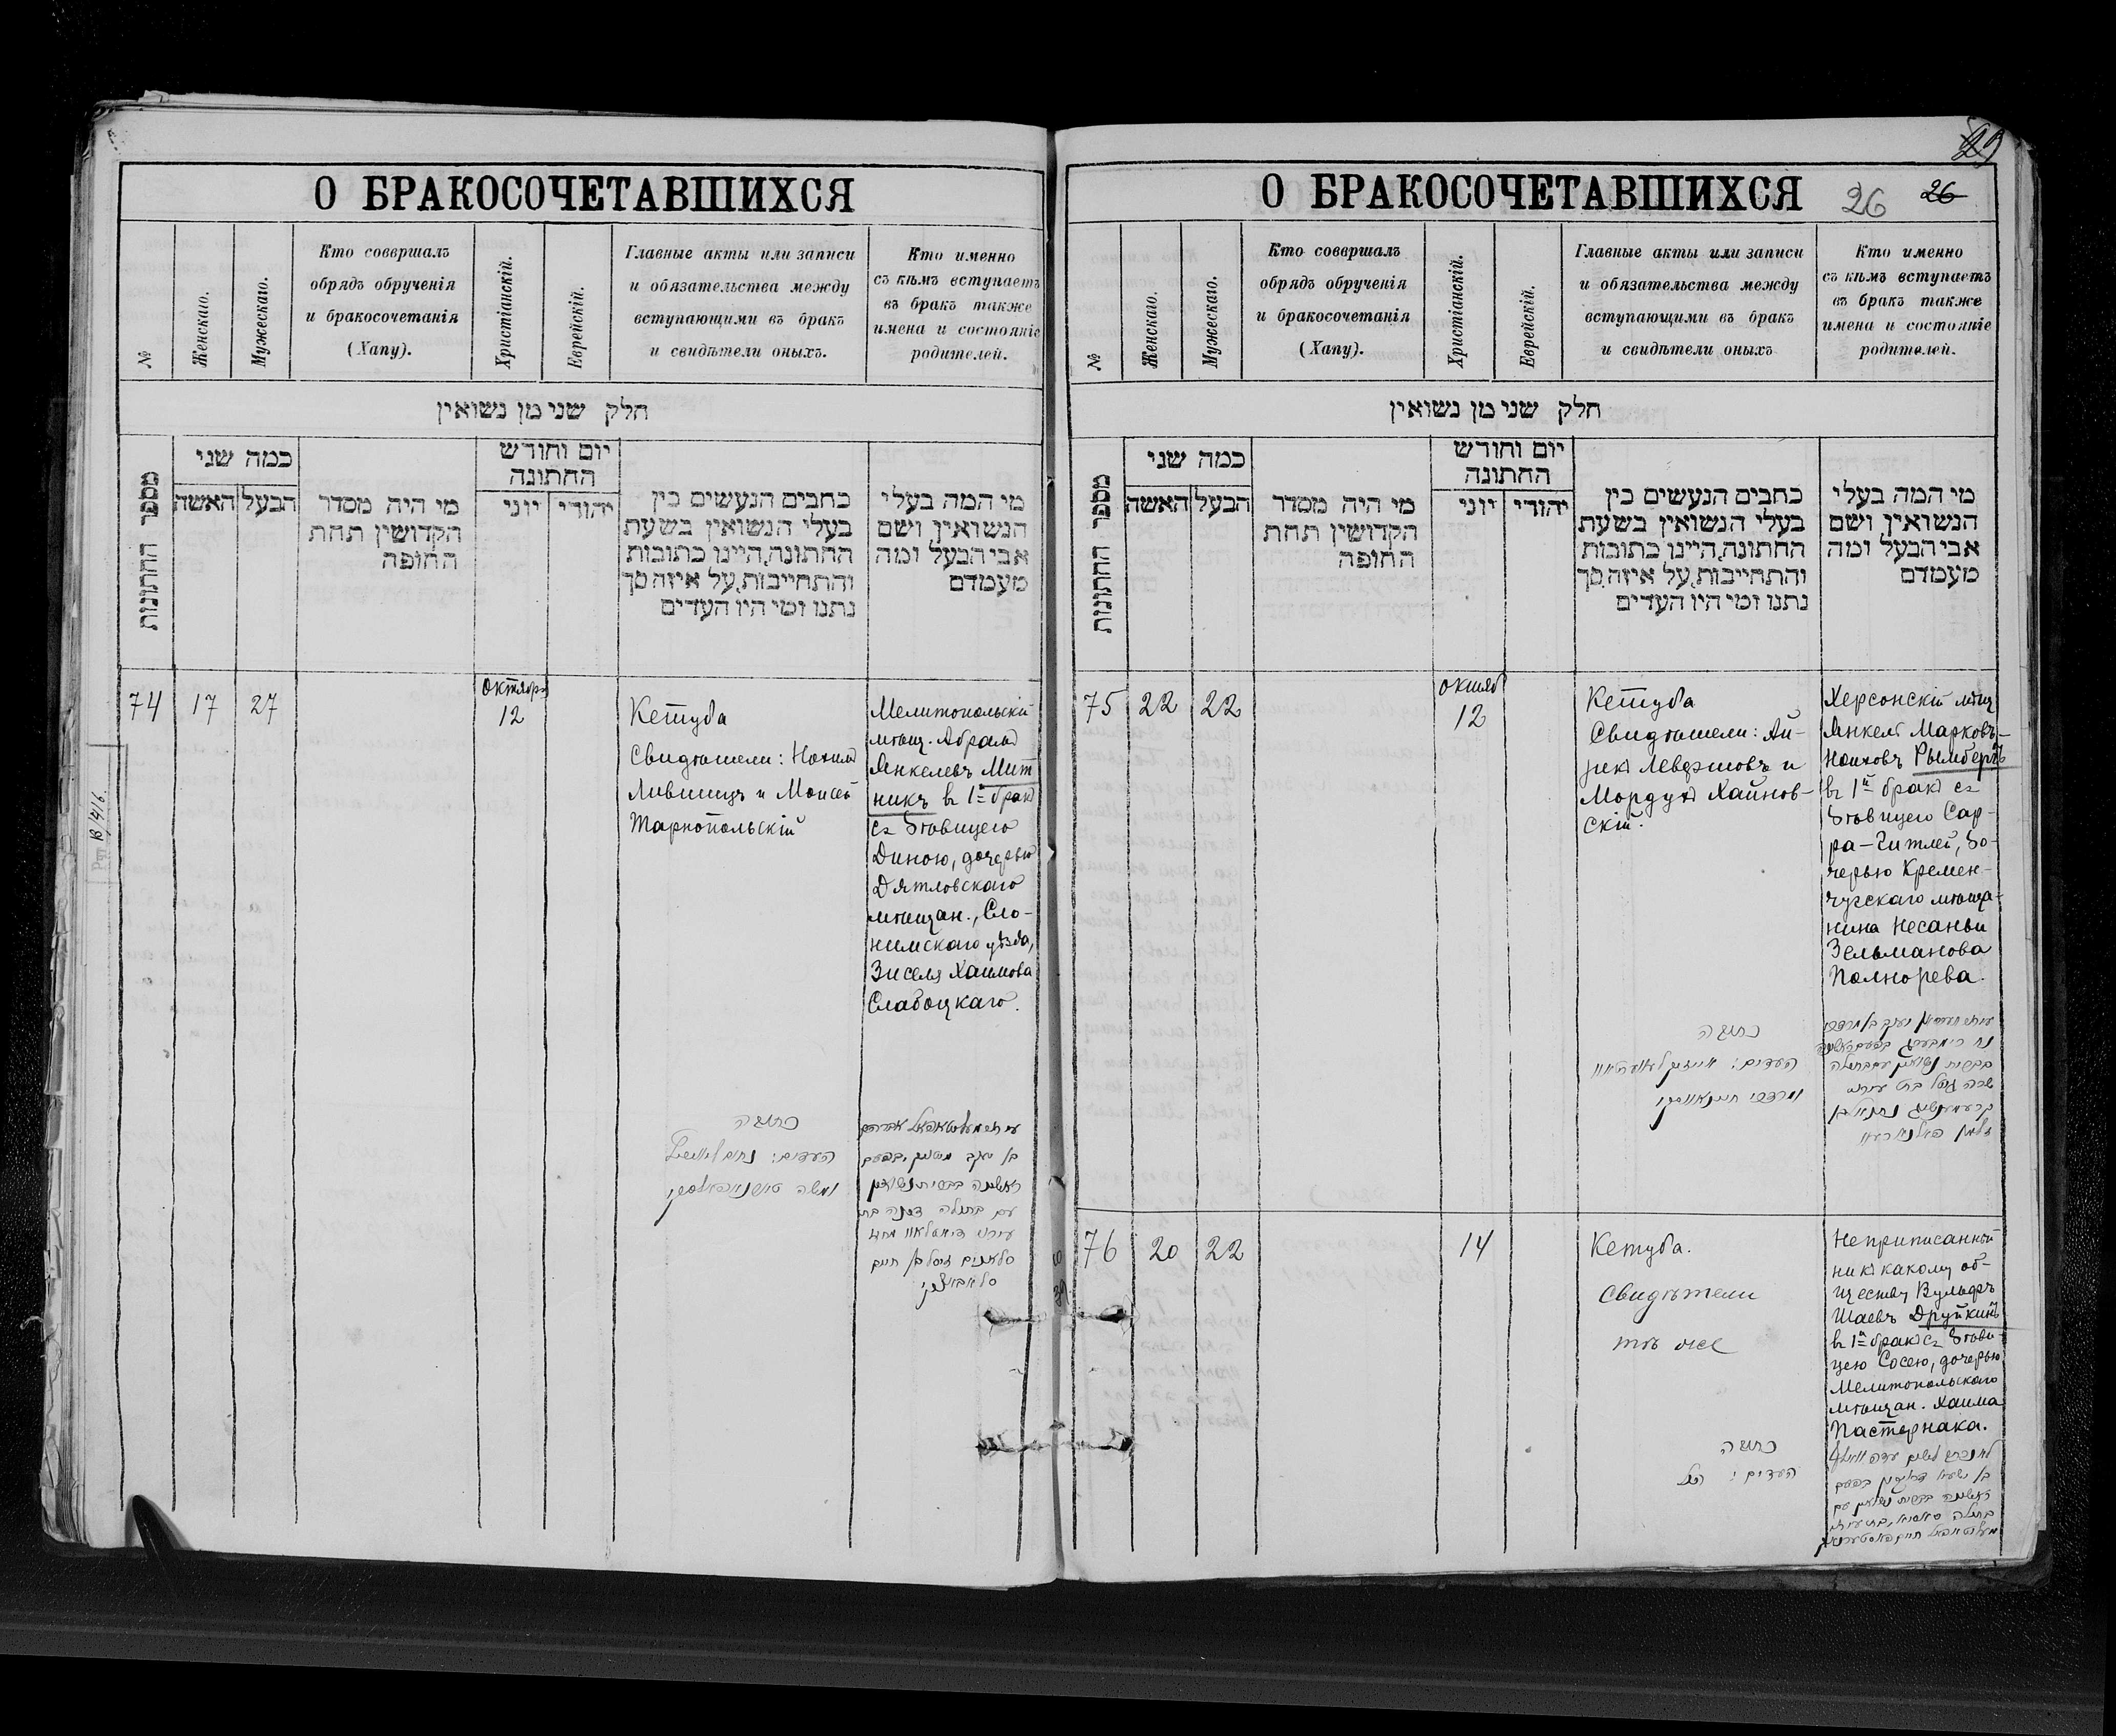 О БРАКОСОЧЕТАВШИХСЯ
№
Женскаго.
Мужескаго.
Кто совершалъ
обрядъ обрученія
и бракосочетанія
(Хапу).
Христіанскій.
Еврейскій.
Главные акты или записи
и обязательства между
вступающими въ бракъ
и свидѣтели оныхъ.
Кто именно
съ кѣмъ вступаетъ
въ бракъ также
имена и состояніе
родителей.
חלק שני מן נשואין
מספר החתונות
כמה שני
האשה
הבעל
מי היה מסדר
הקדושין תחת
החופה
יום וחודש
החתונה
יוני
יהודי
כתבים הנעשים בין
בעלי הנשואין בשעת
החתונה, היינו כתובות
והתחייבות, על איזה סך
נתנו ומי היו העדים
מי המה בעלי
הנשואין ושם
אבי הבעל ומה
מעמדם
74
17
27
Октябр
12
Кетуба
Свидѣтели: Нохимъ
Лившицъ и Моисей
Тарнопольскій
Мелитопольскій
мѣщ. Абрамъ
Янкелевъ Мит
никъ въ 1й бракъ
съ дѣвицею
Диною, дочерью
Дятловскаго
мѣщан., Сло-
нимскаго уѣзда,
Зиселя Хаимова
Слабоцкаго.
כתובה
העדים: נחום
ומשה
בן יעקב
עם בתולה דינה בת
В 1416
29
О БРАКОСОЧЕТАВШИХСЯ
26
26
№
Женскаго.
Мужескаго.
Кто совершалъ
обрядъ обрученія
и бракосочетанія
(Хапу).
Христіанскій.
Еврейскій.
Главные акты или записи
и обязательства между
вступающими въ бракъ
и свидѣтели оныхъ
Кто именно
съ кѣмъ вступаетъ
въ бракъ также
имена и состояніе
родителей.
חלק שני מן נשואין
מספר החתונות
כמה שני
האשה
הבעל
מי היה מסדר
הקדושין תחת
החופה
יום וחודש
החתונה
יוני
יהודי
כתבים הנעשים בין
בעלי הנשואין בשעת
החתונה, היינו כתובות
והתחייבות, על איזה סך
נתנו ומי היו העדים
מי המה בעלי
הנשואין ושם
אבי הבעל ומה
מעמדם
75
22
22
октяб
12
Кетуба
Свидѣтели: Ай-
зикъ и
Мордухъ Хайнов-
скій.
Херсонскій мѣщ
Янкель Марковъ-
Ноиховъ Рымбергъ
въ 1й бракъ съ
дѣвицею Сар-
ра-Гитлей, до-
черью Кремен-
чугскаго мѣща-
нина Несаньи
Зельманова
Полнорева.
כתובה
העדים:
שרה גיטל בת
76
20
22
14
Кетуба.
Свидѣтели
тѣ же
Неприписанный
ни къ какому об-
ществу Вульфъ
Шаевъ Друйкинъ
въ 1й бракъ съ дѣви-
цею Сосею, дочерью
Мелитопольскаго
мѣщан. Хаима
Пастернака.
כתובה
העדים: הנ"ל